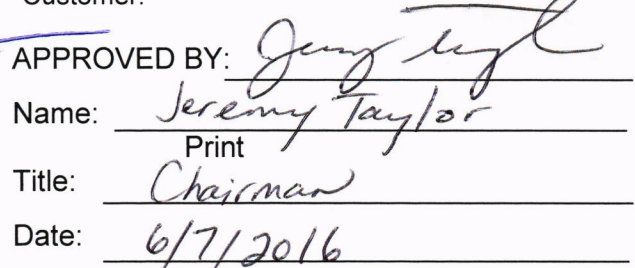 Customer:
APPROVED BY:
Name: Jeremy Taylor
Print
Title: Chairman
Date: 6/7/2016